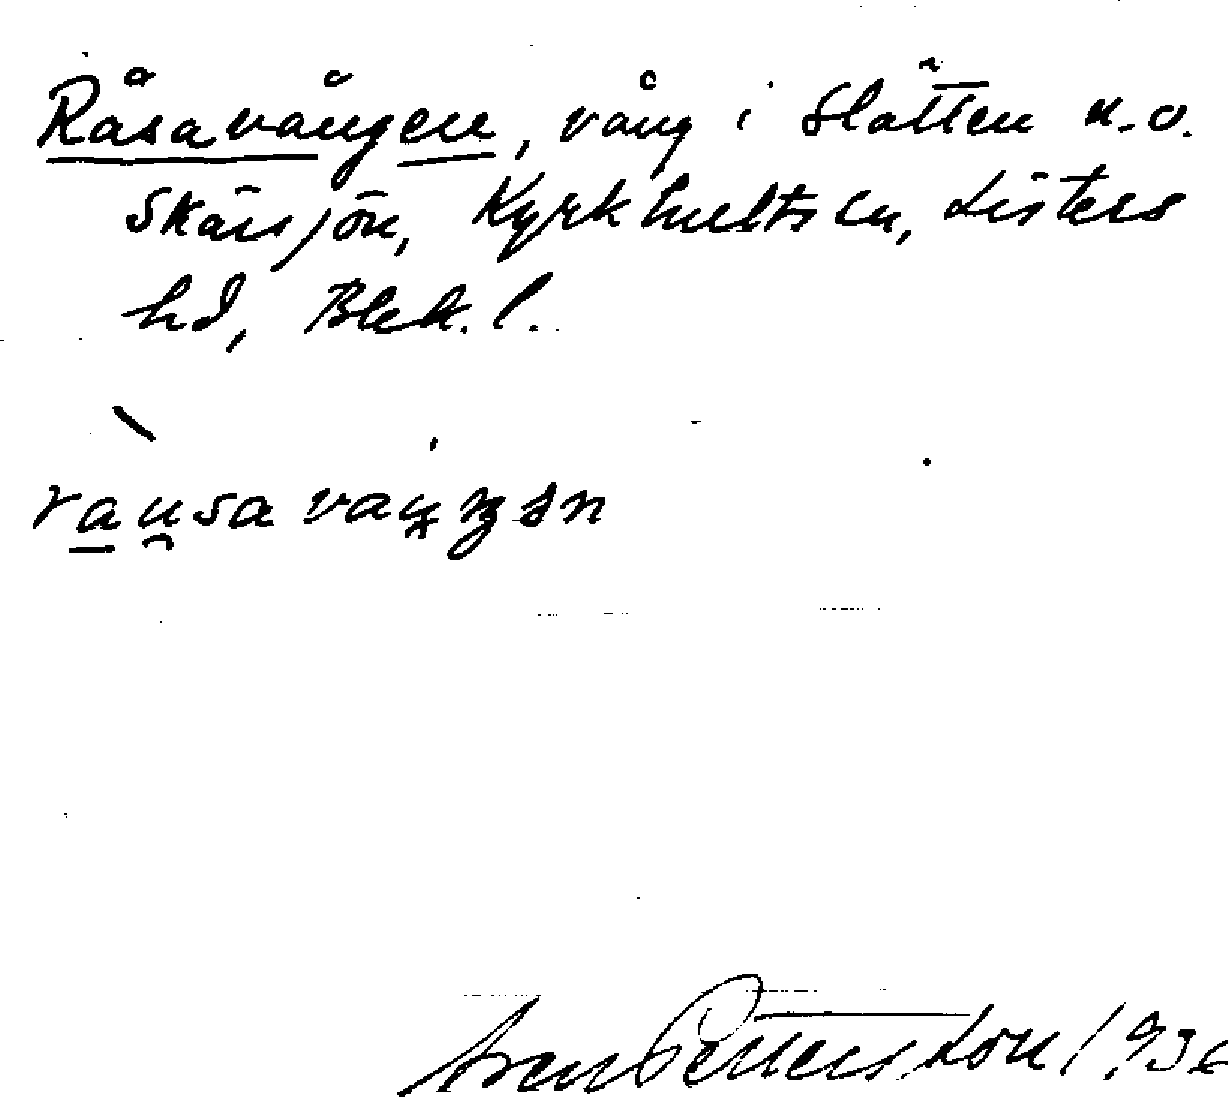 Råsavången, vång i Slätten n.o.
Skärsjön, Kyrkhults sn, Listers
hd, Blek. l.
rausa vaŋŋən
Sven Petterson 1936